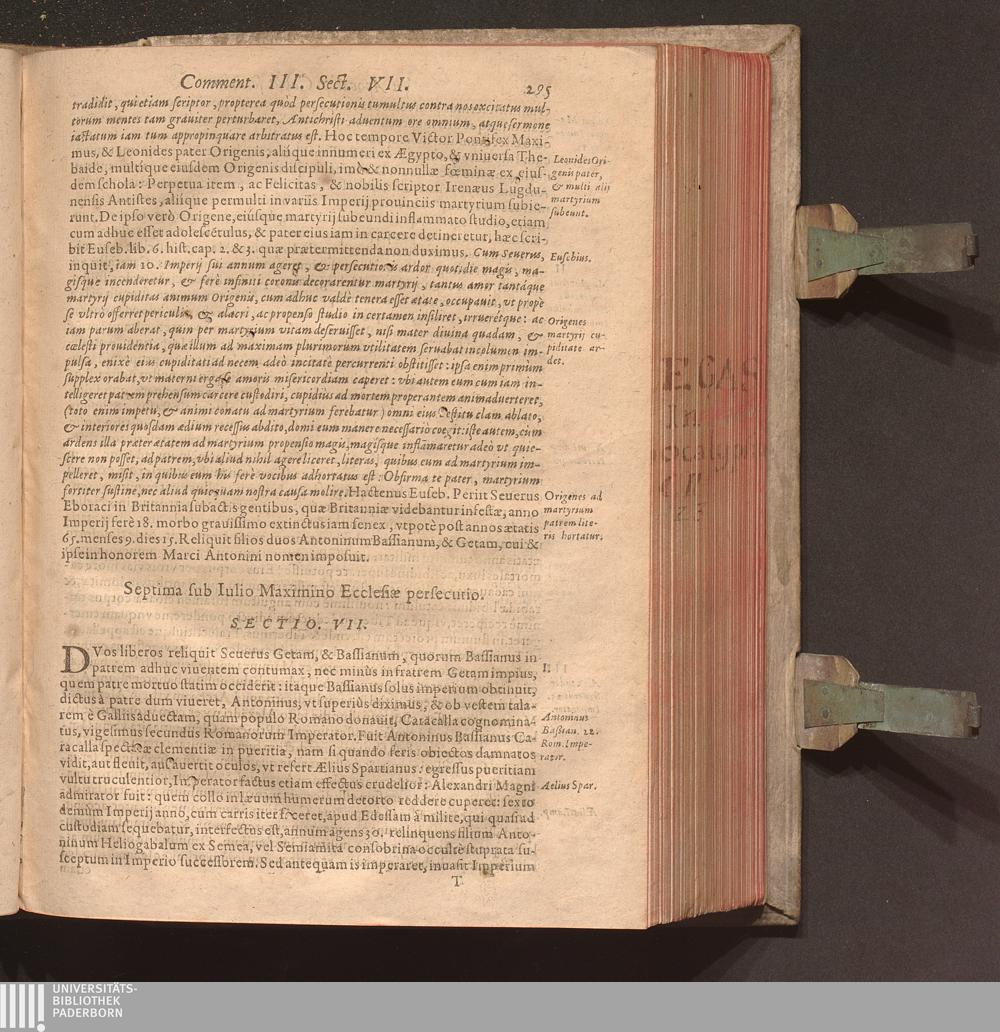 Comment. III. Sect. VII. 295
tradidit, qui etiam scriptor, propterea quòd persecutionis tumultus contra nos excitatus mul-
torum mentes tam grauiter perturbaret, Antichristi aduentum ore omnium, atque sermone
iactatum iam tum appropinquare arbitratus est. Hoc tempore Victor Pontifex Maxi-
mus, & Leonides pater Origenis, aliique innumeri ex Ægypto, & vniuersa The-
baide, multique eiusdem Origenis discipuli, imò & nonnullæ fœminæ ex eius-
dem schola: Perpetua item, ac Felicitas, & nobilis scriptor Irenæus Lugdu-
nensis Antistes, aliique permulti in variis Imperij prouinciis martyrium subie-
runt. De ipso verò Origene, eiúsque martyrij subeundi inflammato studio, etiam
cum adhuc esset adolescétulus, & pater eius iam in carcere detineretur, hæc scri-
bit Euseb. lib. 6. hist. cap. 2. & 3. quæ prætermittenda non duximus. Cum Seuerus,
inquit, iam 10. Imperij sui annum ageret, & persecutionis ardor quotidie magis, ma-
gisque incenderetur, & ferè infiniti coronis decorarentur martyrij, tantus amor tantáque
martyrij cupiditas animum Origenis, cum adhuc valdè tenera esset ætate, occupauit, vt propè
se vltrò offerret periculis, & alacri, ac propenso studio in certamen insiliret, irrueretque: ac
iam parum aberat, quin per martyrium vitam deseruisset, nisi mater diuina quadam, &
cælesti prouidentia, quæ illum ad maximam plurimorum vtilitatem seruabat incolumen im-
pulsa, enixè eius cupiditati ad necem adeò incitatè percurrenti obstitisset: ipsa enim primùm
supplex orabat, vt materni erga se amoris misericordiam caperet: vbi autem eum cum iam in-
telligeret patrem prehensum carcere custodiri, cupidiùs ad mortem properantem animaduerteret,
(toto enim impetu, & animi conatu ad martyrium ferebatur) omni eius vestitu clam ablato,
& interiores quosdam ædium recessus abdito, domi eum manere necessariò coegit: iste autem, cùm
ardens illa præter ætatem ad martyrium propensio magis, magisque inflāmaretur adeò vt quie-
scere non posset, ad patrem, vbi aliud nihil agere liceret, literas, quibus eum ad martyrium im-
pelleret, misit, in quibus eum his ferè vocibus adhortatus est: Obfirma te pater, martyrium
fortiter sustine, nec aliud quicquam nostra causa molire. Hactenus Euseb. Periit Seuerus
Eboraci in Britannia subactis gentibus, quæ Britanniæ videbantur infestæ, anno
Imperij ferè 18. morbo grauissimo extinctus iam senex, vtpotè post annos ætatis
65. menses 9. dies 15. Reliquit filios duos Antoninum Bassianum, & Getam, cui &
ipse in honorem Marci Antonini nomen imposuit.
Leonides Ori-
genis pater,
& multi alij
martyrium
subeunt.
Eusebius.
Origenes
martyrij cu-
piditate ar-
det.
Origenes ad
martyrium
patrem lite-
ris hortatur.
Septima sub Iulio Maximino Ecclesiæ persecutio.
SECTIO. VII.
DVos liberos reliquit Seuerus Getam, & Bassianum, quorum Bassianus in
patrem adhuc viuentem contumax, nec minùs in fratrem Getam impius,
quem patre mortuo statim occiderit: itaque Bassianus solus imperium obtinuit,
dictus à patre dum viueret, Antoninus, vt superiùs diximus, & ob vestem tala-
rem è Galliis aduectam, quam populo Romano donauit, Caracalla cognomina-
tus, vigesimus secundus Romanorum Imperator. Fuit Antoninus Bassianus Ca-
racalla spectatæ clementiæ in pueritia, nam si quando feris obiectos damnatos
vidit, aut fleuit, aut auertit oculos, vt refert Ælius Spartianus: egressus pueritiam
vultu truculentior, Imperator factus etiam effectus crudelior: Alexandri Magni
admirator fuit: quem collo in læuum humerum detorto reddere cuperet: sexto
demùm Imperij anno, cum carris iter faceret, apud Edessam à milite, qui quasi ad
custodiam sequebatur, interfectus est, annum agens 30. relinquens filium Anto-
ninum Heliogabalum ex Semea, vel Semiamita consobrina occultè stuprata su-
sceptum in Imperio successorem. Sed antequam is imperaret, inuasit Imperium
II.
Antoninus
Bassian. 22.
Rom. Impe-
rator.
Aelius Spar.
T
UNIVERSITÄTS-
BIBLIOTHEK
PADERBORN